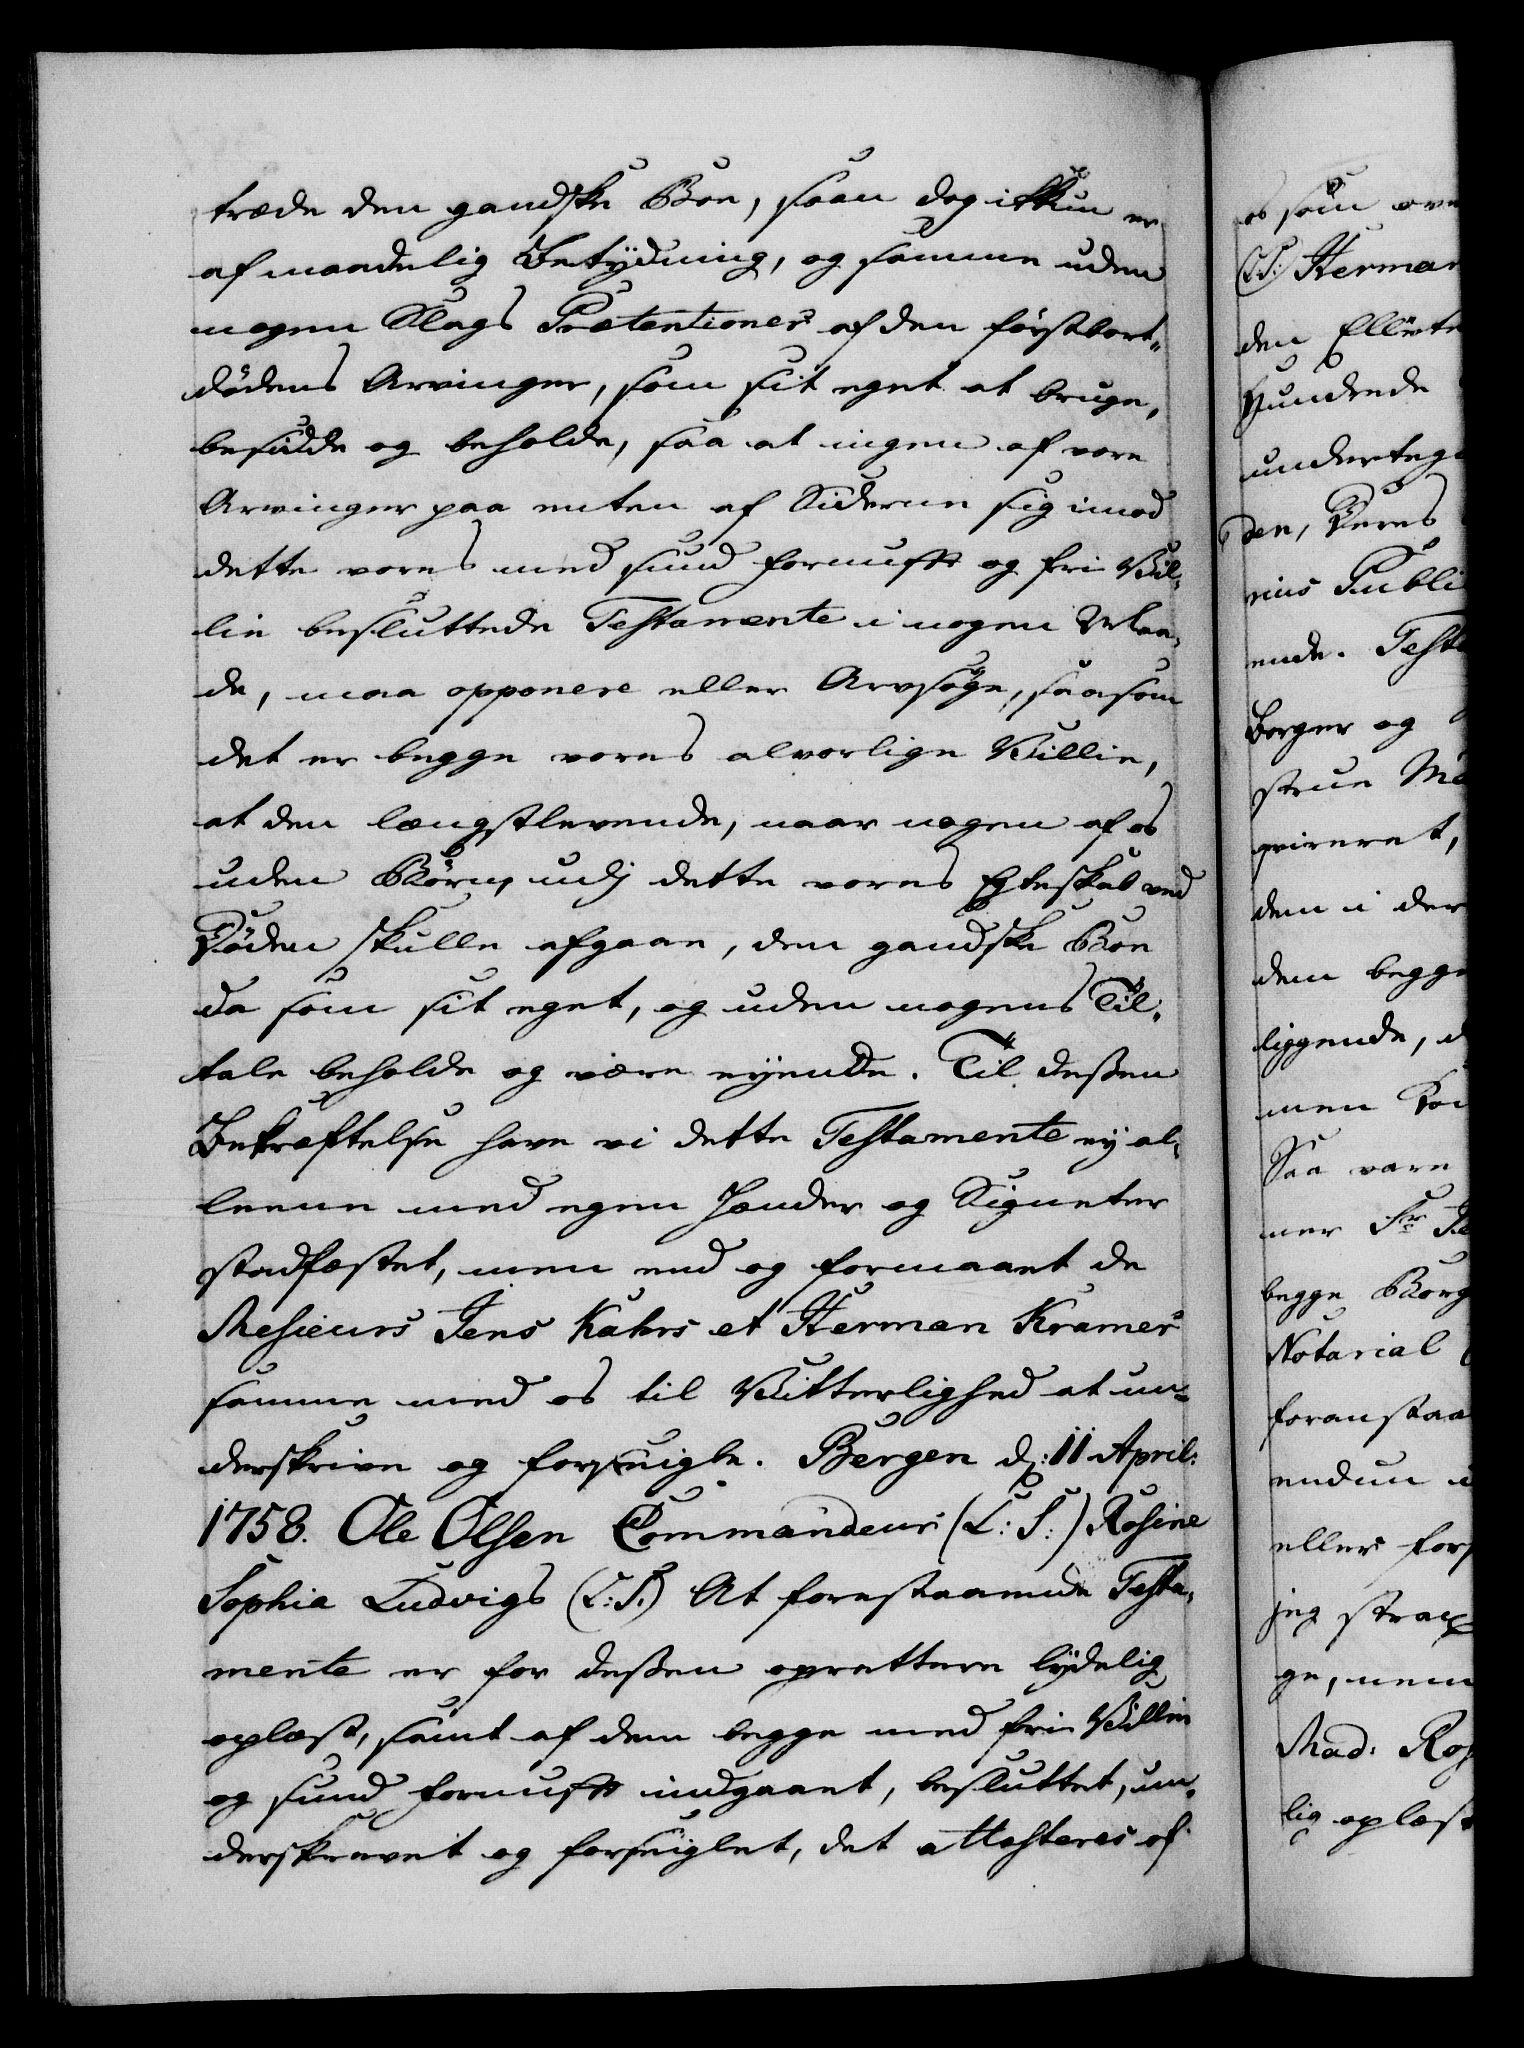 træde den gandske Boe, saan dog ikkun er
af maadelig Betydning, og samme uden
nogen Slags Prætentioner af den först bort-
dödens Arvinger, som sit eget at bruge,
besidde og beholde, saa at ingen af vore
Arvinger paa enten af Siderne sig imod
dette vores med sund Fornufft og fri Vil-
lie besluttede Testamente i nogen Maa-
de, maa opponere eller Arvsöge, saasom
det er begge vores alvorlige Villie,
at den længstlevende, naar nogen af os
uden Börn, udj dette vores Egteskab ved
Döden skulle afgaae, den gandske Boe
da som sit eget, og uden nogens Til-
tale beholde og være eyende. Til dessen
Bekræftelse have vi dette Testamente ey al-
leene med egen Hænder og Signeter
stadfæstet, men end og formaaet de
Mesieurs Jens Kahrs et Herman Kramer
samme med os til Vitterlighed at un-
derskrive og forseigle. Bergen d: 11 April:
1758. Ole Olsen Commandeur (L: S:) Rosine
Sophia Ludvigs (L: S.) At forestaaende Testa-
mente er for dessen oprettere lydelig
oplæst, samt af dem begge med fri Villie
og sund Fornufft indgaaet, besluttet, un-
derskrevet og forseiglet, det attesteres af
os som
(L.S.) Herman
den Ellevte
Hundrede
underteg
den,
nius Publi
ende. Test
Borger og
strue
den i der
dem begge
liggende,
men
Saa vare
ner Sr
begge Borg
Notarial
foranstaa
enduu
eller fors
jeg strax
ge, men
Mad: Ros
lig oplæst